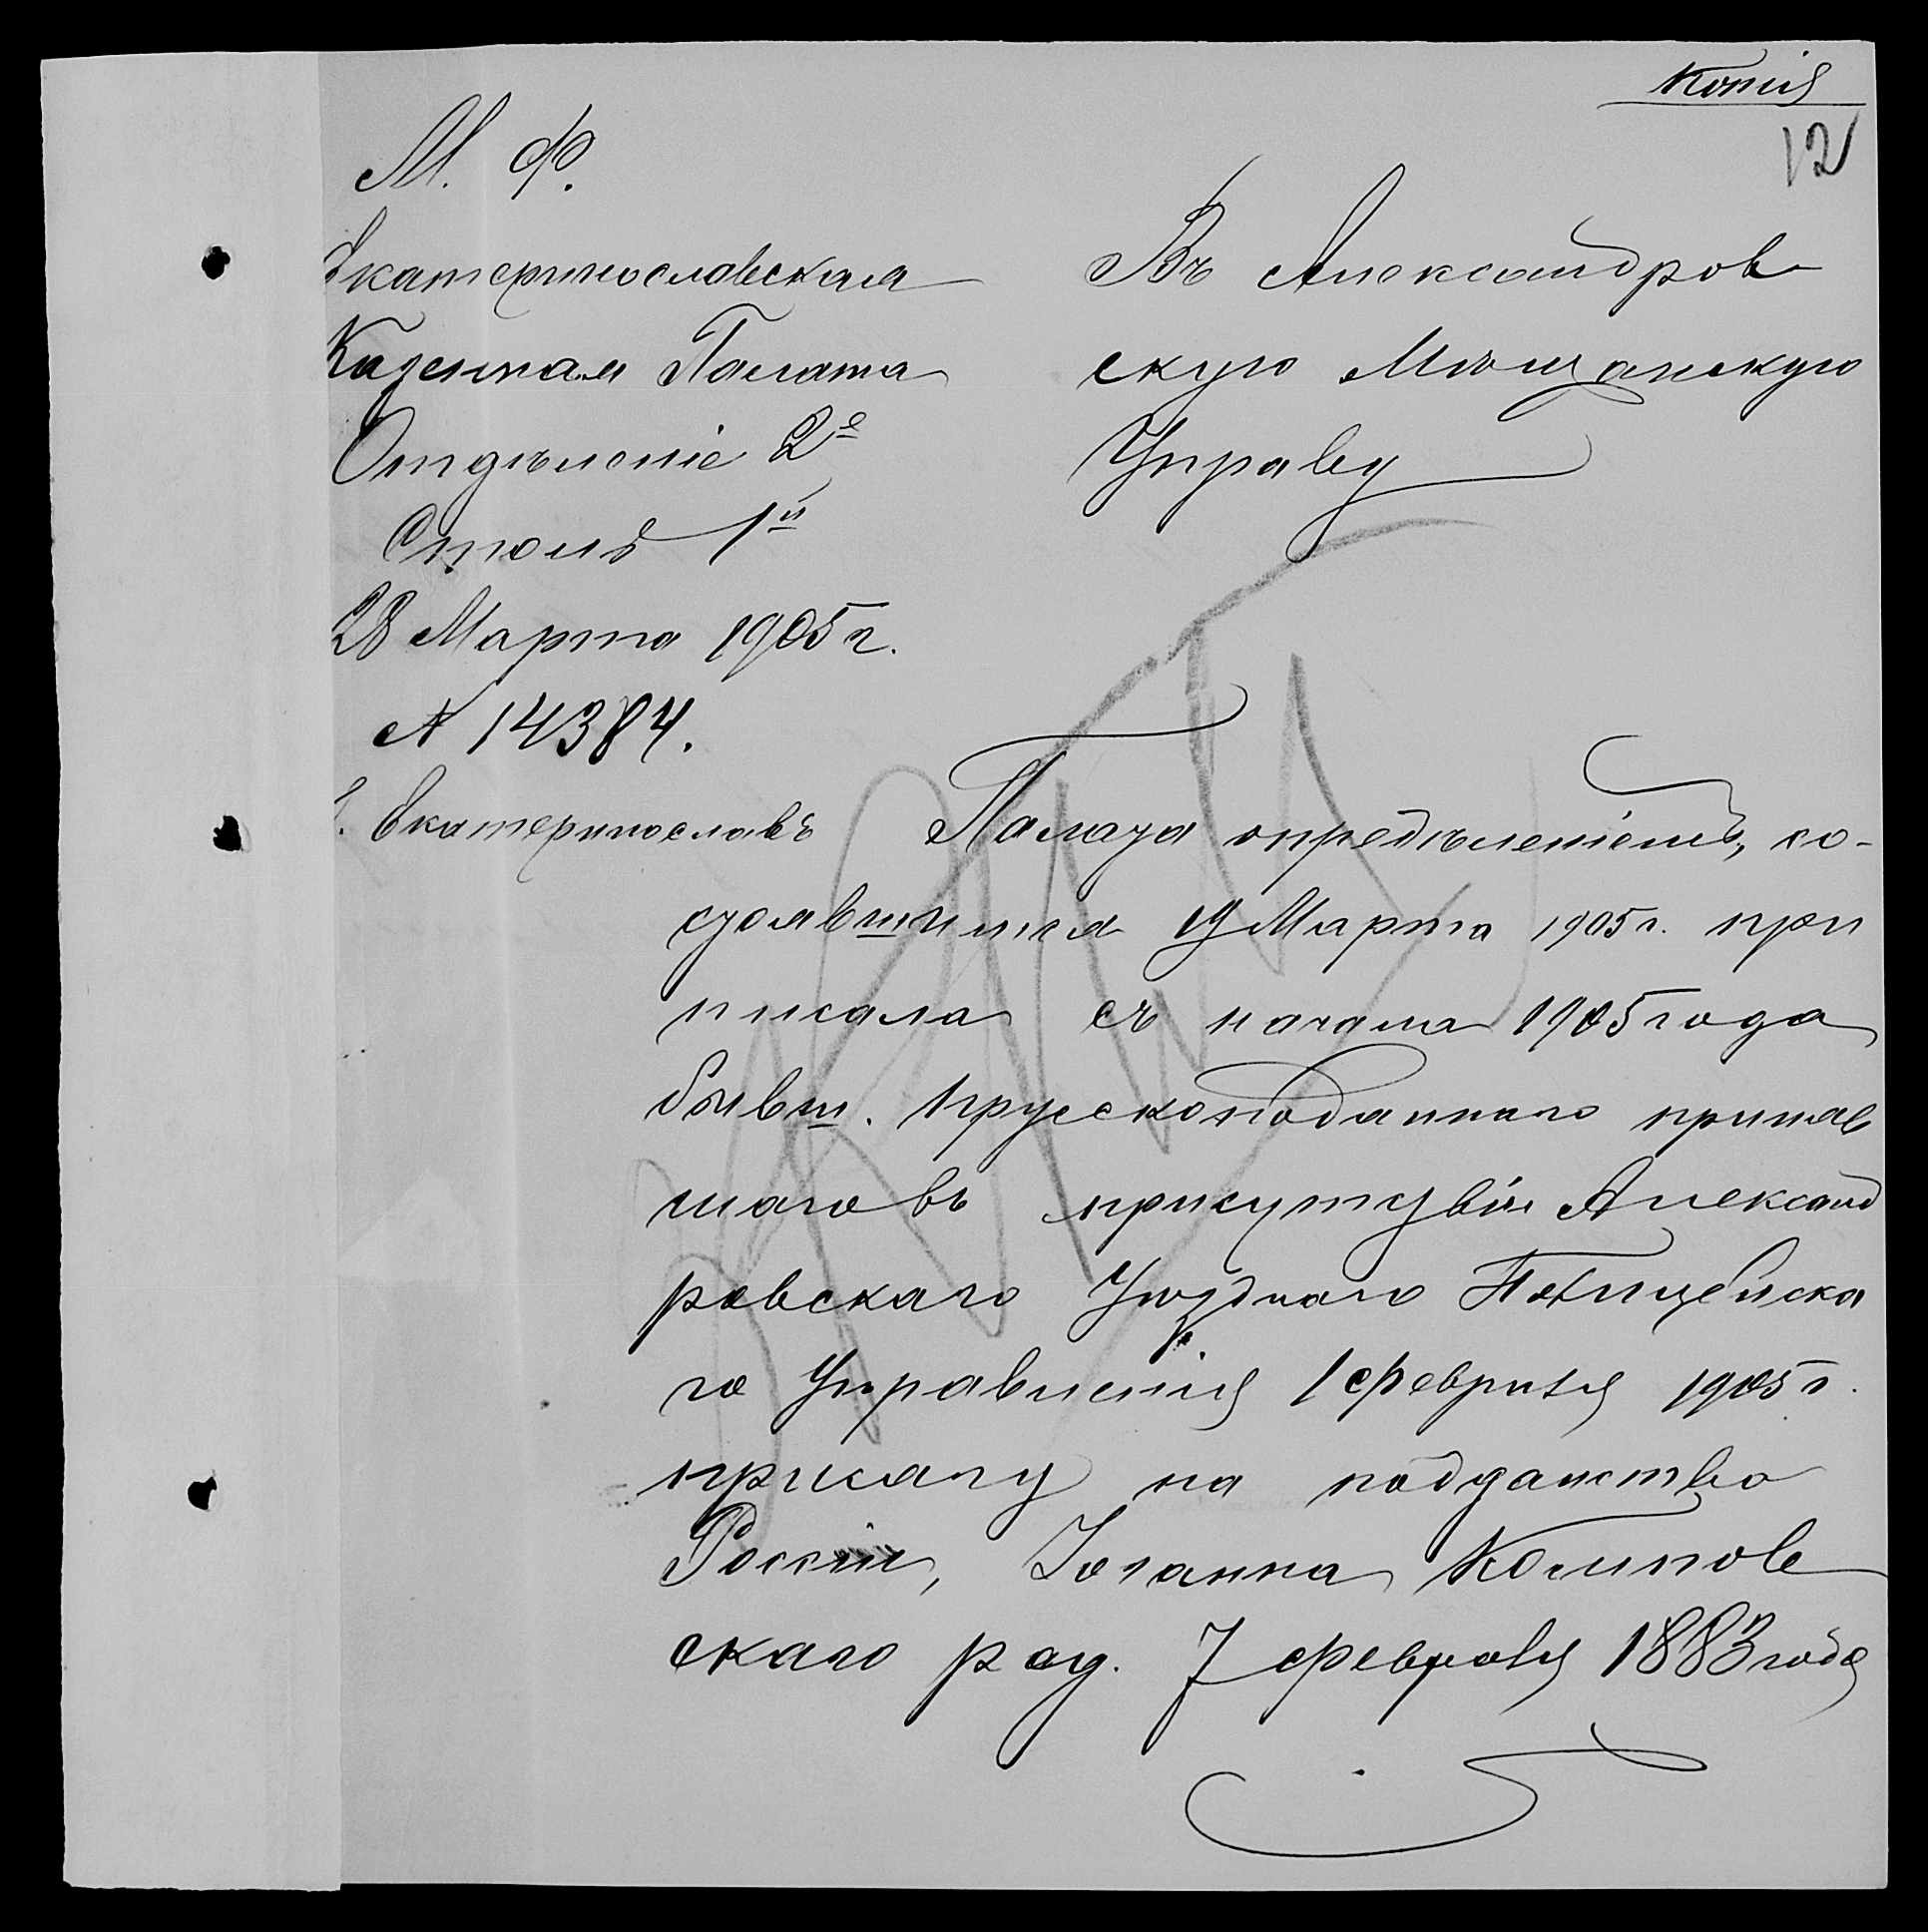 Копія
12
М. Ф.
Екатеринославская
Казенная Палата
Отдѣленіе 2е
Столъ 1й
28 Марта 1905 г.
№ 14384.
г. Екатеринославъ
Въ Александров
скую Мѣщанскую
Управу
Палата опредѣленіемъ, со-
стоявшимся 19 Марта 1905 г. при
писала съ начала 1905 года
бывш. прусскоподданнаго приняв
шаго въ присутствіи Александ
ровскаго Уѣзднаго Полицейска
го Управленія 1 февраля 1905 г.
присягу на подданство
Россіи, Іоганна Колпов
скаго род. 7 февраля 1883 года